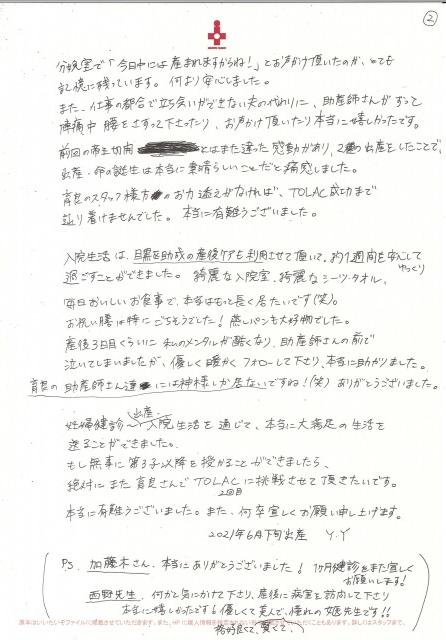 ②
分娩室で「今日中には産まれますからね！」とお声かけ頂いたのが、とても
記憶に残っています。何より安心しました。
また、仕事の都合で立ち会いができない夫の代わりに、助産師さんがずっと
陣痛中 腰をさすって下さったり、お声かけ頂いたり本当に嬉しかったです。
前回の帝王切開とはまた違った感動があり、2度の出産をしたことで、
出産・命の誕生は本当に素晴らしいことだと痛感しました。
育良のスタッフ様方のお力添えがなければ、TOLAC成功まで
辿り着けませんでした。本当に有難うございました。
入院生活は、目黒区助成の産後ケアも利用させて頂いて、約1週間を安心して
ゆっくり
過ごすことができました。綺麗な入院室、綺麗なシーツ・タオル、
毎日おいしいお食事で、本当はもっと長く居たいです(笑)。
お祝い膳は特にごちそうでした！蒸しパンも大好物でした。
産後3日目くらいに私のメンタルが酷くなり、助産師さんの前で
泣いてしまいましたが、優しく暖かくフォローして下さり、本当に助かりました。
育良の助産師さん達には神様しか居ないですね！(笑) ありがとうございました。
出産、
妊婦健診〜入院生活を通じて、本当に大満足の生活を
送ることができました。
もし無事に第3子以降を授かることができましたら、
絶対にまた育良さんでTOLACに挑戦させて頂きたいです。
2回目
本当に有難うございました。また、何卒宜しくお願い申し上げます。
2021年6月下旬出産 Y.Y
P.S. 加藤木さん、本当にありがとうございました！1ヶ月健診もまた宜しく
お願いします！
西野先生、何かと気にかけて下さり、産後に病室を訪問して下さり
本当に嬉しかったです！優しくて美人で、憧れの女医先生です!!
格好良くて、賢くて、